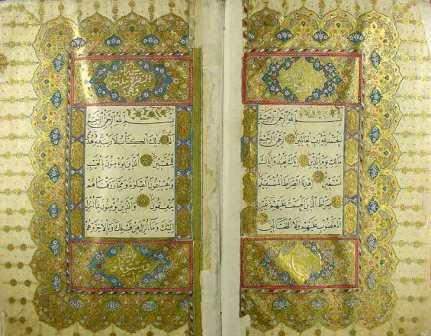 بسم الله الرحمن الرحيم
الحمد لله رب العالمين الرحمن
الرحيم مالك يوم الدين اياك نعبد واياك
نستعين اهدنا الصراط المستقيم
صراط الذين انعمت عليهم غير
المغضوب عليهم ولا الضالين
بسم الله الرحمن الرحيم
الم ذلك الكتاب لا ريب فيه هدى
للمتقين الذين يؤمنون بالغيب
ويقيمون الصلوة ومما رزقناهم
ينفقون والذين يؤمنون بما انزل
اليك وما انزل من قبلك وبالاخرة هم